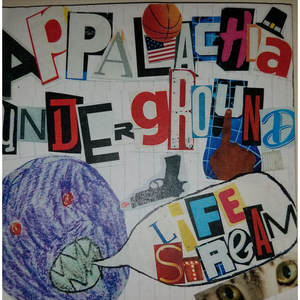 APPALACHiA
UNDERGROUND
LiFE
STREAM